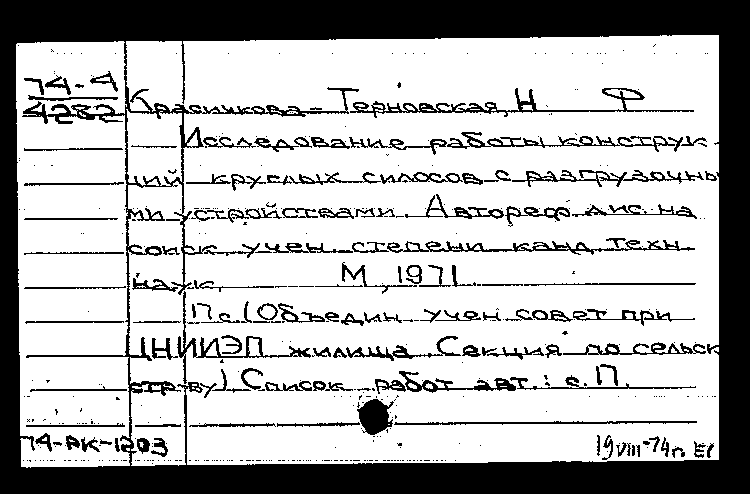 74-4
4282
Красичкова-Терновская, Н Ф
Исследование работы конструк-
ций круглых силосов с разгрузочны
ми устройствами. Автореф. дис. на
соиск. учен. степени канд. техн.
наук. М, 1971
11 с. (Объедин учен совет при
ЦНИИЭП жилища. Секция по сельск
стр-ву) Список работ авт.: с. 11.
74-РК-1203
19 VIII-74 г.